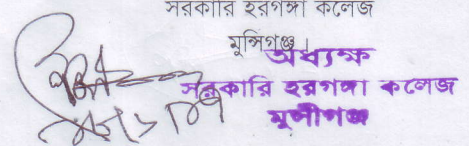 সরকারি হরগঙ্গা কলেজ
মুন্সিগঞ্জ।
অধ্যক্ষ
সরকারি হরগঙ্গা কলেজ
মুন্সীগঞ্জ